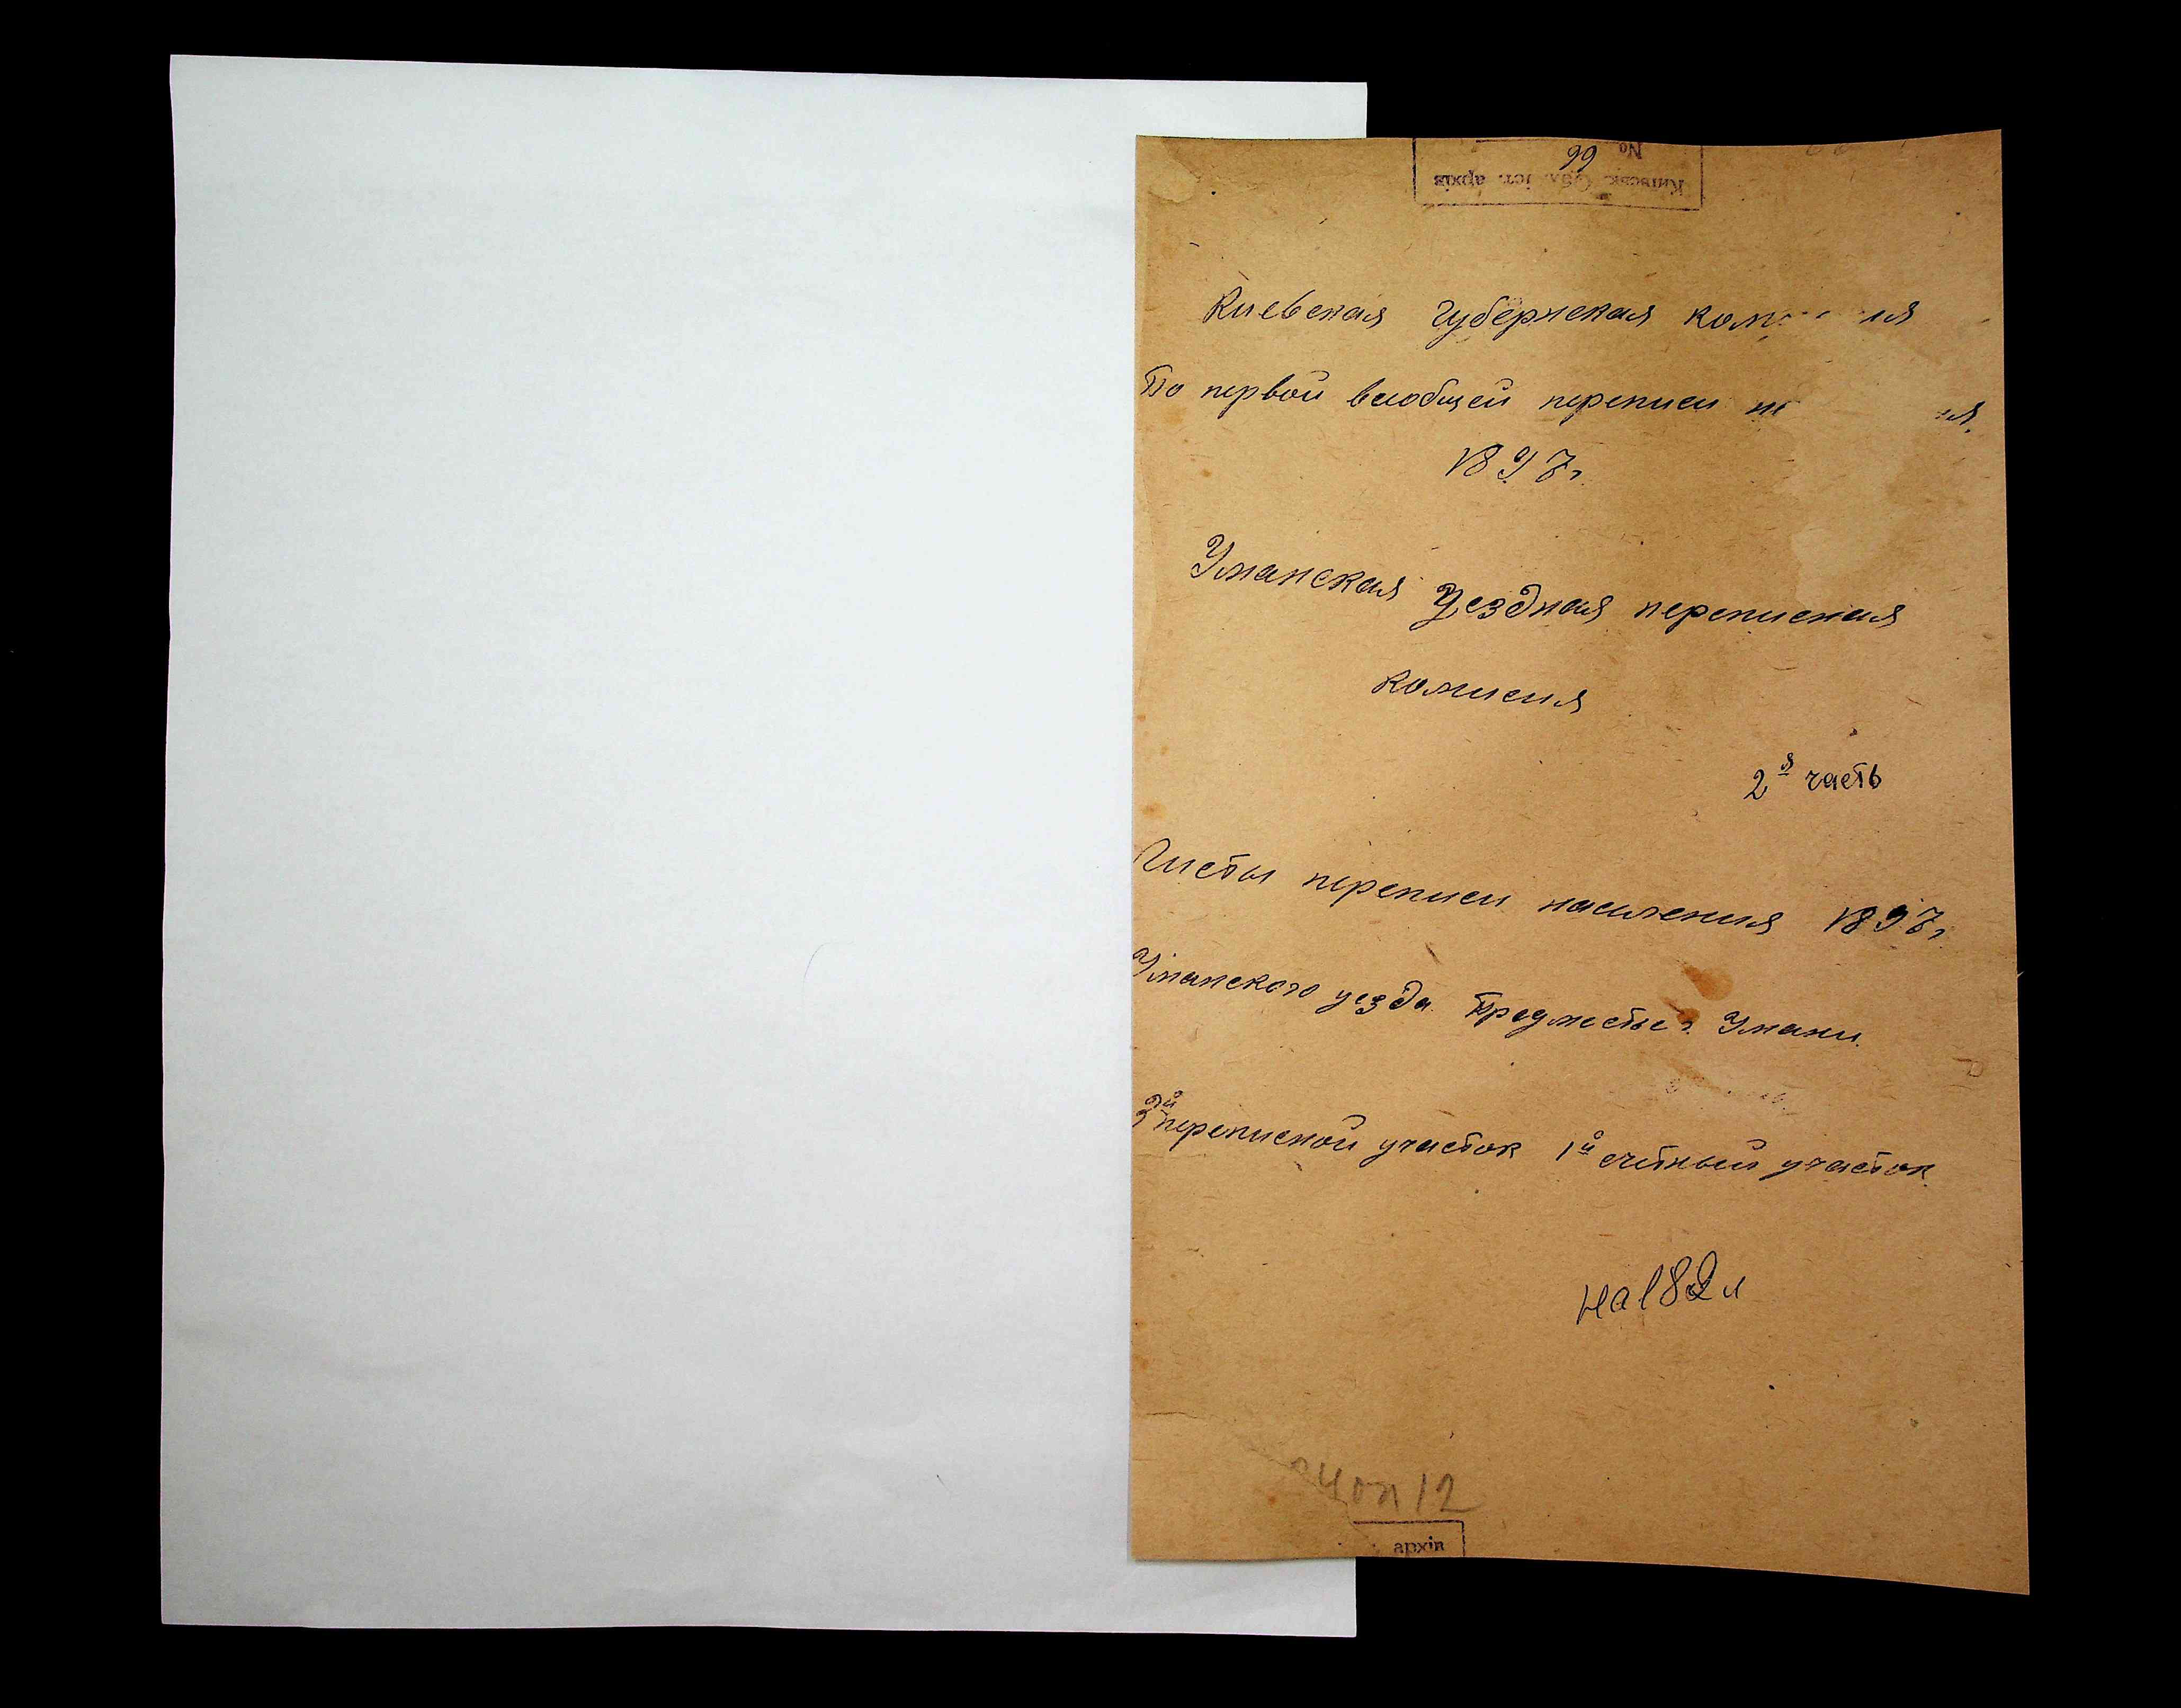 № 99
Київськ. Обл. іст. архів
Киевская Губернская
По первой всеобщей переписи
1897г.
Уманская Уездная переписная
комисия
2я часть
Листы переписи населения 1897г
Уманского уезда Предместье г. Умани
переписной участок 1й счётный участок
на 182 л
оп 12
архів